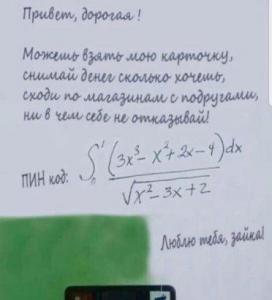 Привет, дорогая!
Можешь взять мою карточку,
снимай денег сколько хочешь,
сходи по магазинам с подругами,
ни в чем себе не отказывай!
ПИН код: ∫₀¹ (3x³ - x² + 2x - 4)dx / √(x² - 3x + 2)
Люблю тебя, зайка!